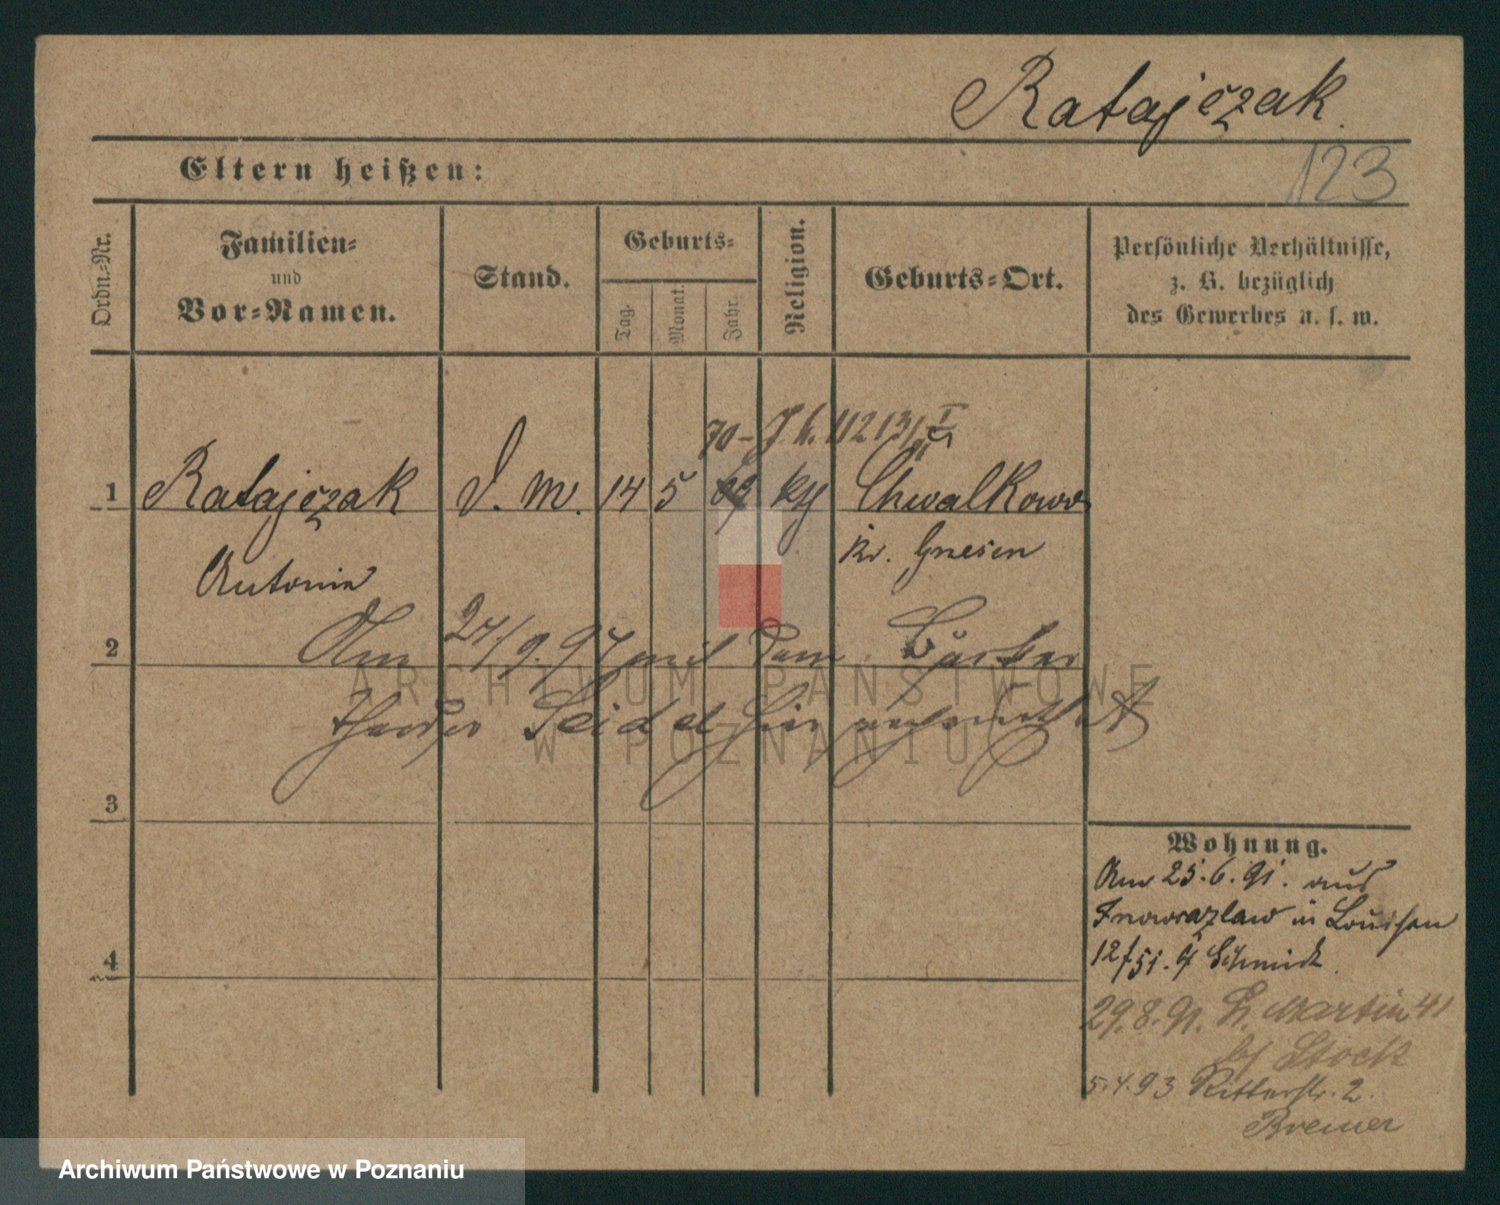 Ratajczak.
123
Eltern heißen:
Ordn.-Nr.
Familien-
und
Vor-Namen.
Stand.
Geburts-
Tag.
Monat.
Jahr.
Religion.
Geburts-Ort.
Persönliche Verhältnisse,
z. B. bezüglich
des Gewerbes u. s. w.
70
1 Ratajczak D. M. 14 5 69 kth Chwalkowo
Kr. Gnesen
Antonia
2 Am 24/9. 97 mit dem
Theodor Seidel hier verheirathet
3
4
Wohnung.
Am 25.6.91. aus
Inowrazlaw in Louisen
12 Schmidt
29.8.91. St. Martin 41
bei Stock
5.4.93 Ritterstr. 2.
Bremer
ARCHIWUM PAŃSTWOWE
W POZNANIU
Archiwum Państwowe w Poznaniu